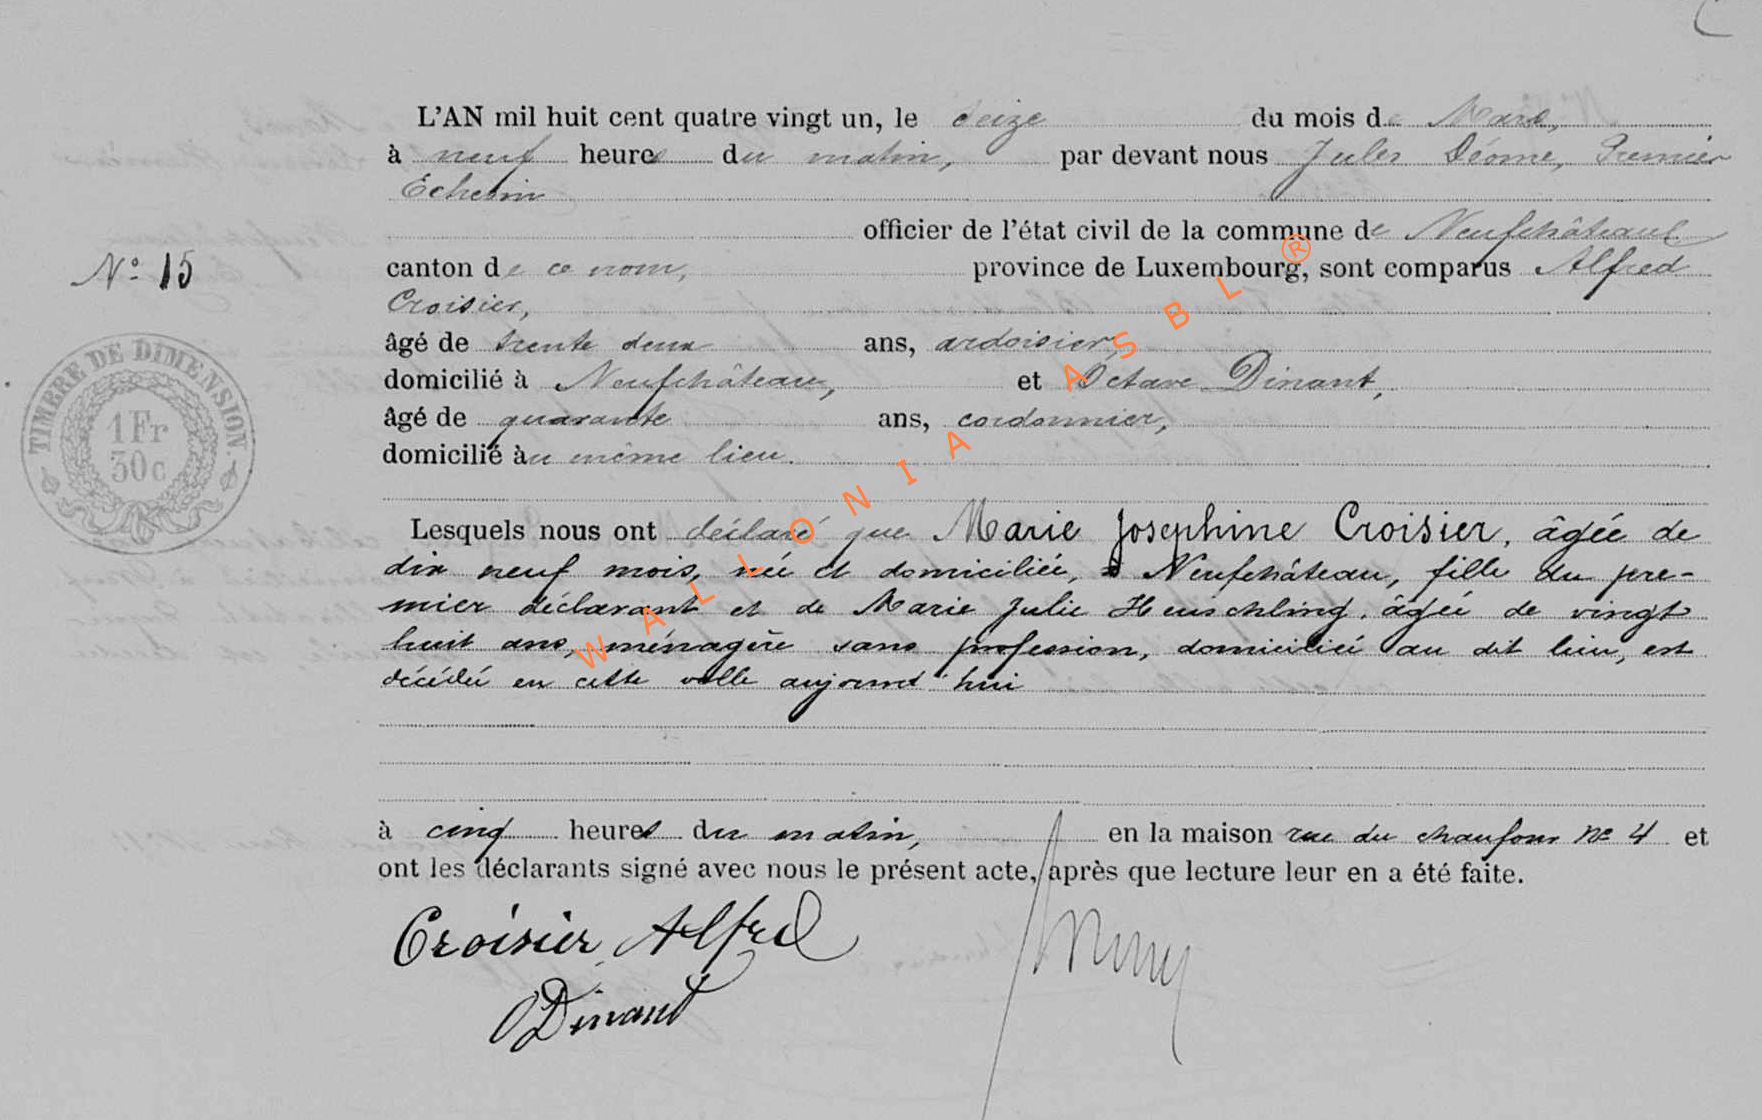 L'AN mil huit cent quatre vingt un, le seize du mois de Mars,
à neuf heures du matin, par devant nous Jules Déome, Premier
Echevin
officier de l'état civil de la commune de Neufchâteau
N° 15
canton de ce nom, province de Luxembourg, sont comparus Alfred
Croisier,
âgé de trente deux ans, ardoisier,
domicilié à Neufchâteau, et Octave Dinant,
âgé de quarante ans, cordonnier,
domicilié au même lieu.
TIMBRE DE DIMENSION.
1 Fr
30 c
Lesquels nous ont déclaré que Marie Josephine Croisier, âgée de
dix neuf mois, née et domiciliée, à Neufchâteau, fille du pre-
mier déclarant et de Marie Julie Heuschling, âgée de vingt
huit ans, ménagère sans profession, domiciliée au dit lieu, est
décédée en cette ville aujourd'hui
à cinq heures du matin, en la maison rue du chaufour N° 4 et
ont les déclarants signé avec nous le présent acte, après que lecture leur en a été faite.
Croisier Alfred
ODinant
WALLONIA ASBL ®